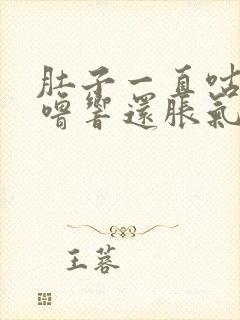 肚子一直咕
嚕響還脹氣
王蓉